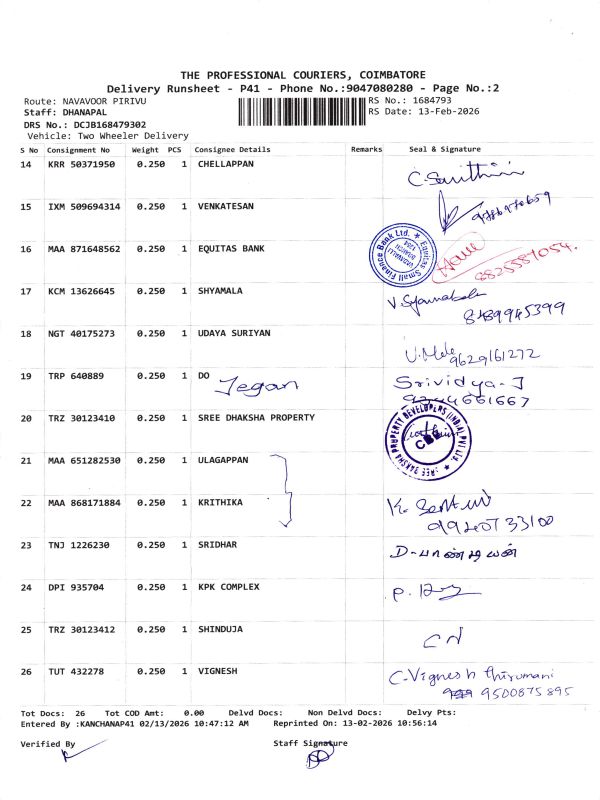 THE PROFESSIONAL COURIERS, COIMBATORE
Delivery Runsheet - P41 - Phone No.:9047080280 - Page No.:2
Route: NAVAVOOR PIRIVU RS No.: 1684793
Staff: DHANAPAL RS Date: 13-Feb-2026
DRS No.: DCJB168479302
Vehicle: Two Wheeler Delivery
S No Consignment No Weight PCS Consignee Details Remarks Seal & Signature
14 KRR 50371950 0.250 1 CHELLAPPAN
15 IXM 509694314 0.250 1 VENKATESAN
16 MAA 871648562 0.250 1 EQUITAS BANK Equitas Small Finance Bank Ltd. 8825587054.
17 KCM 13626645 0.250 1 SHYAMALA
8489945399
18 NGT 40175273 0.250 1 UDAYA SURIYAN
9629161272
19 TRP 640889 0.250 1 DO Jegan Srividya-J
9244661667
20 TRZ 30123410 0.250 1 SREE DHAKSHA PROPERTY SREE DAKSHA PROPERTY DEVELOPERS (INDIA) PVT LTD. CBE
21 MAA 651282530 0.250 1 ULAGAPPAN
22 MAA 868171884 0.250 1 KRITHIKA
9940733100
23 TNJ 1226230 0.250 1 SRIDHAR D-பாண்டியன்
24 DPI 935704 0.250 1 KPK COMPLEX
25 TRZ 30123412 0.250 1 SHINDUJA
26 TUT 432278 0.250 1 VIGNESH C.Vignesh thirumani
9500875895
Tot Docs: 26 Tot COD Amt: 0.00 Delvd Docs: Non Delvd Docs: Delvy Pts:
Entered By :KANCHANAP41 02/13/2026 10:47:12 AM Reprinted On: 13-02-2026 10:56:14
Verified By Staff Signature